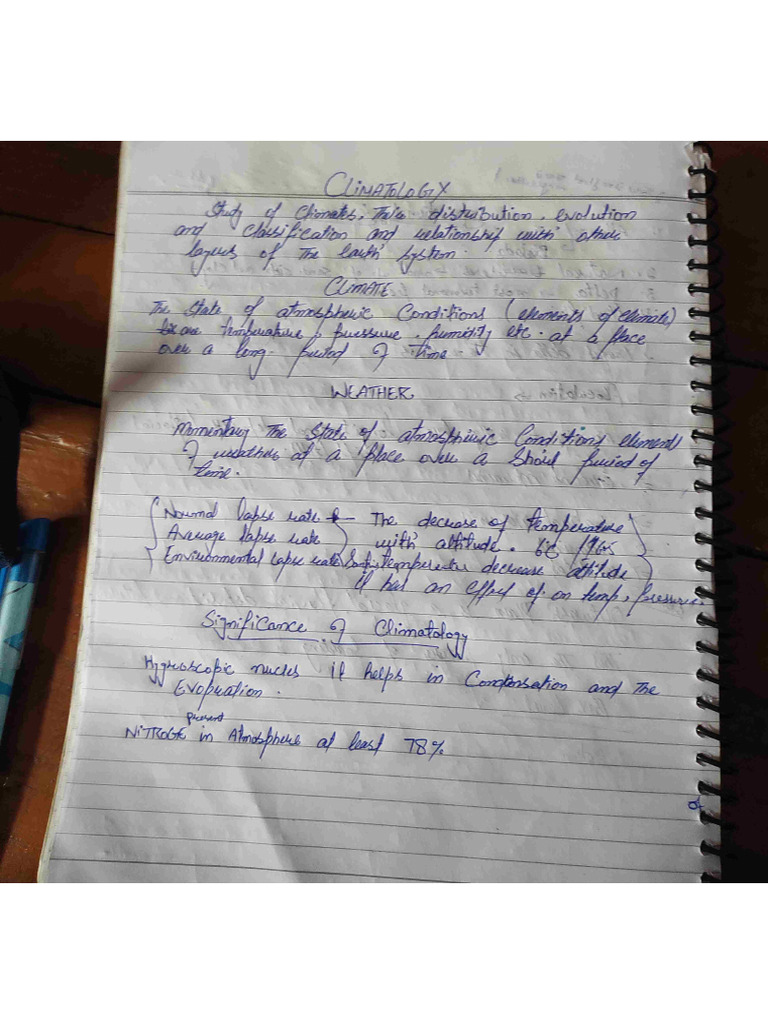 CLIMATOLOGY
Study of Climates, Their distribution, evolution
and classification and relationship with other
layers of The Earth System.
CLIMATE
The State of atmospheric Conditions (elements of climate)
temperature, pressure, humidity etc. at a place
over a long period of time.
WEATHER
Momentary The State of atmospheric Conditions element
of weather at a place over a Short period of
time.
Normal lapse rate The decrease of temperature
Average lapse rate with altitude. 6c
Environmental lapse rate temperature decrease altitude
it has an effect of on temp, pressure.
Significance of Climatology
Hygroscopic nucles it helps in Condensation and The
Evopration.
present
NiTROGE in Atmosphere at least 78%